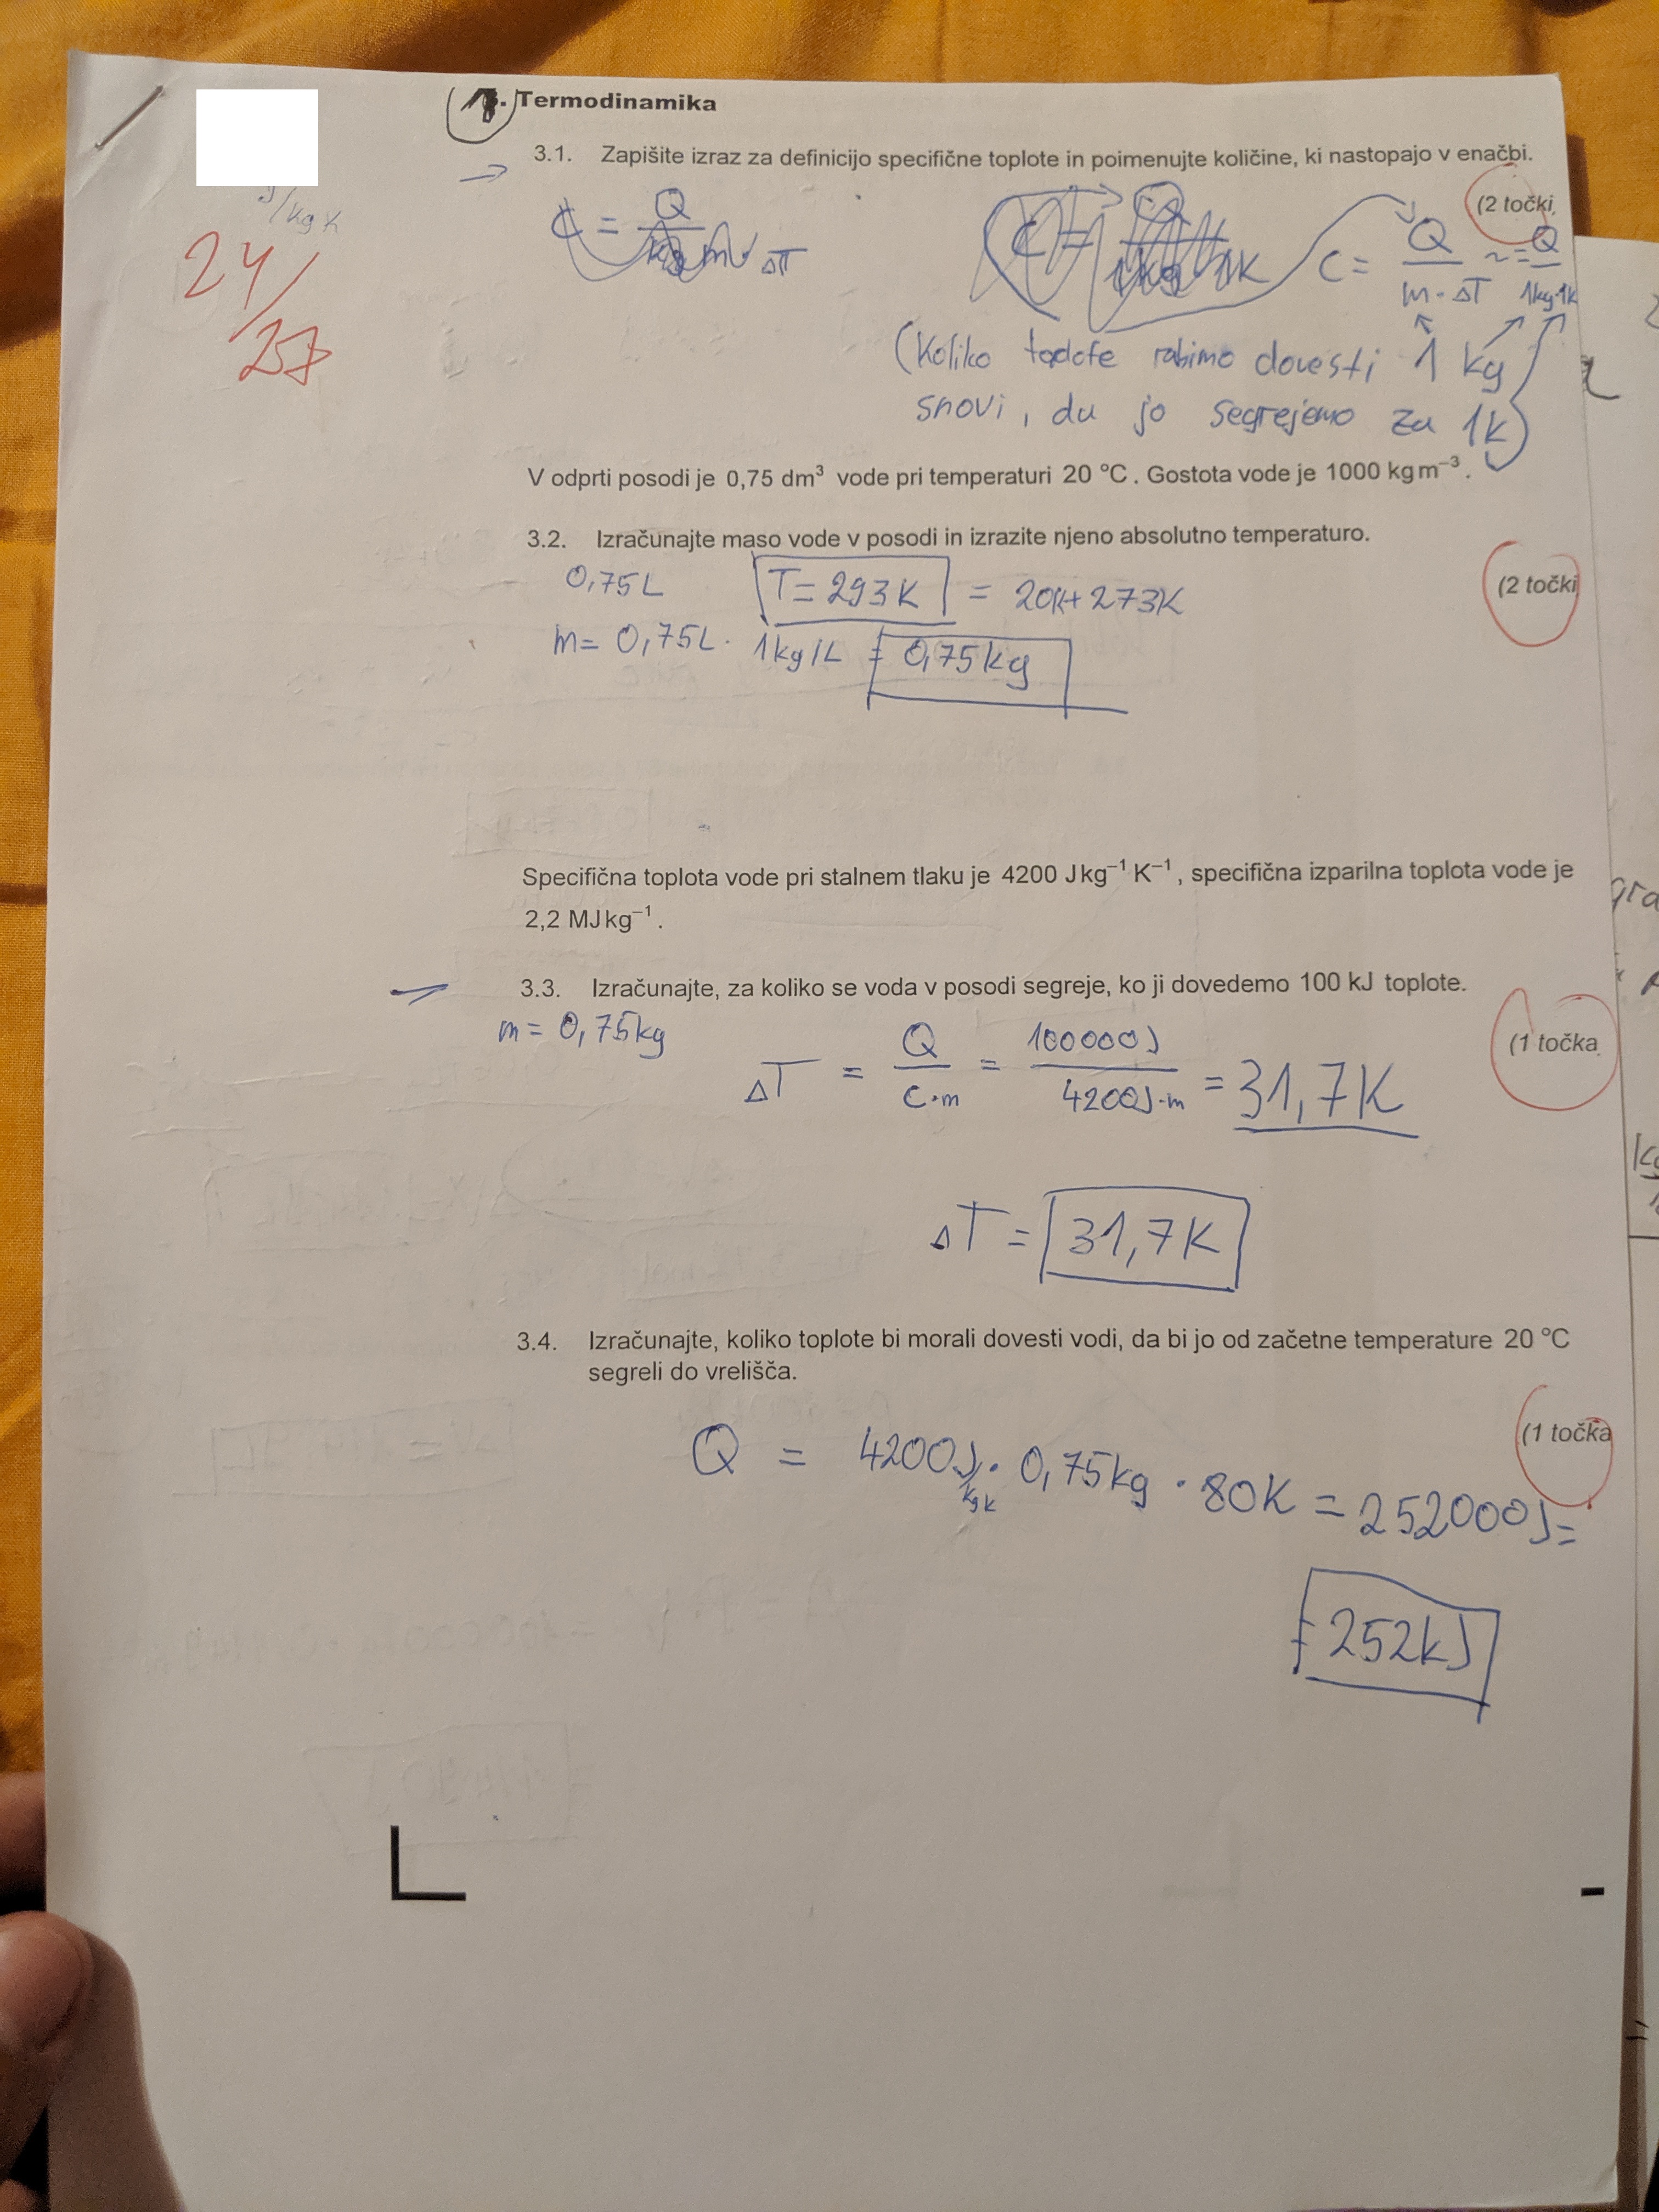 1. Termodinamika
3.1. Zapišite izraz za definicijo specifične toplote in poimenujte količine, ki nastopajo v enačbi.
(2 točki
J/kg K
24/27
C = Q / m · ΔT
C = Q / m · ΔT ~= Q / 1kg·1K
(Koliko toplote rabimo dovesti 1 kg
snovi, da jo segrejemo za 1K)
V odprti posodi je 0,75 dm³ vode pri temperaturi 20 °C. Gostota vode je 1000 kg m⁻³.
3.2. Izračunajte maso vode v posodi in izrazite njeno absolutno temperaturo.
(2 točki
0,75L T = 293K = 20K+273K
m = 0,75L · 1kg/L = 0,75kg
Specifična toplota vode pri stalnem tlaku je 4200 J kg⁻¹ K⁻¹, specifična izparilna toplota vode je
2,2 MJ kg⁻¹.
3.3. Izračunajte, za koliko se voda v posodi segreje, ko ji dovedemo 100 kJ toplote.
(1 točka
m = 0,75kg
ΔT = Q / C·m = 100000J / 4200J·m = 31,7K
ΔT = 31,7K
3.4. Izračunajte, koliko toplote bi morali dovesti vodi, da bi jo od začetne temperature 20 °C
segreli do vrelišča.
(1 točka
Q = 4200J/kgK · 0,75kg · 80K = 252000J =
= 252kJ